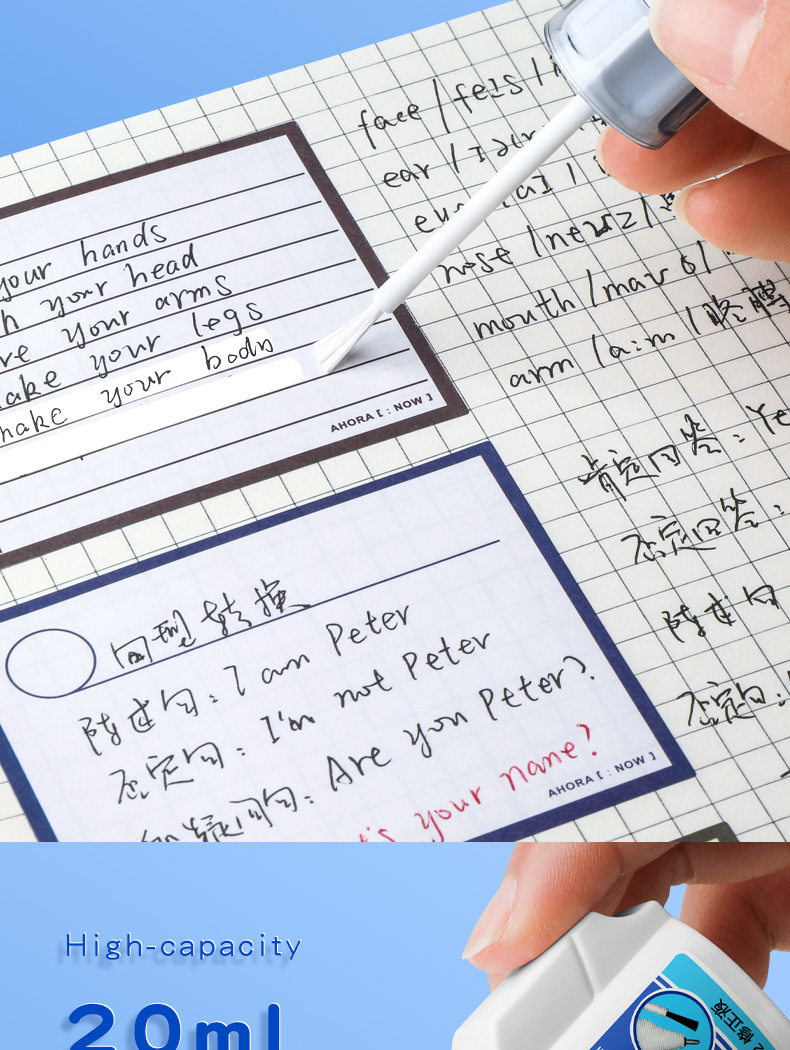 your hands
your head
your arms
your legs
your body
AHORA [ : NOW ]
face / feis /
ear /
nose / neuz /
mouth / mav θ /
arm / a:m / 胳膊
肯定回答: Ye
否定回答:
陈述句
否定句:
句型转换
陈述句: I am Peter
否定句: I'm not Peter
疑问句: Are you Peter?
's your name?
AHORA [ : NOW ]
High-capacity
20ml
修正液